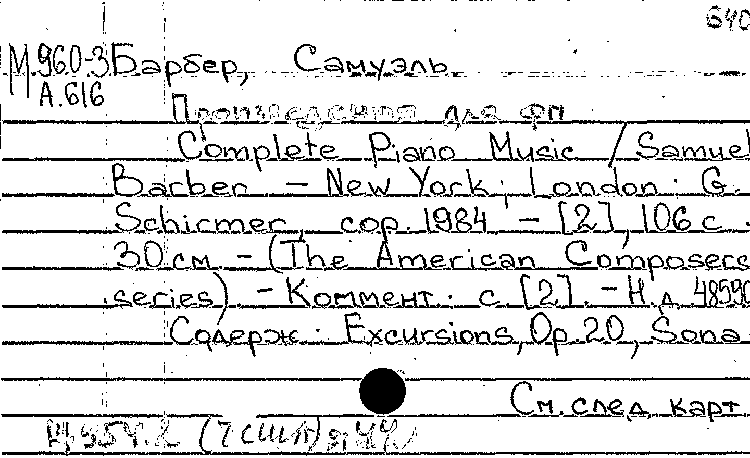 640
М.960-3 Барбер, Самуэль.
А.616
Произведения для фп
Complete Piano Music / Samuel
Barber. – New York; London: G.
Schirmer, cop. 1984. – [2], 106 с.
30 см. – (The American Composers
series). – Коммент.: с. [2]. – Н.д. 48590
Содерж.: Excursions, Op. 20, Sona-
См. след. карт.
(7 США)